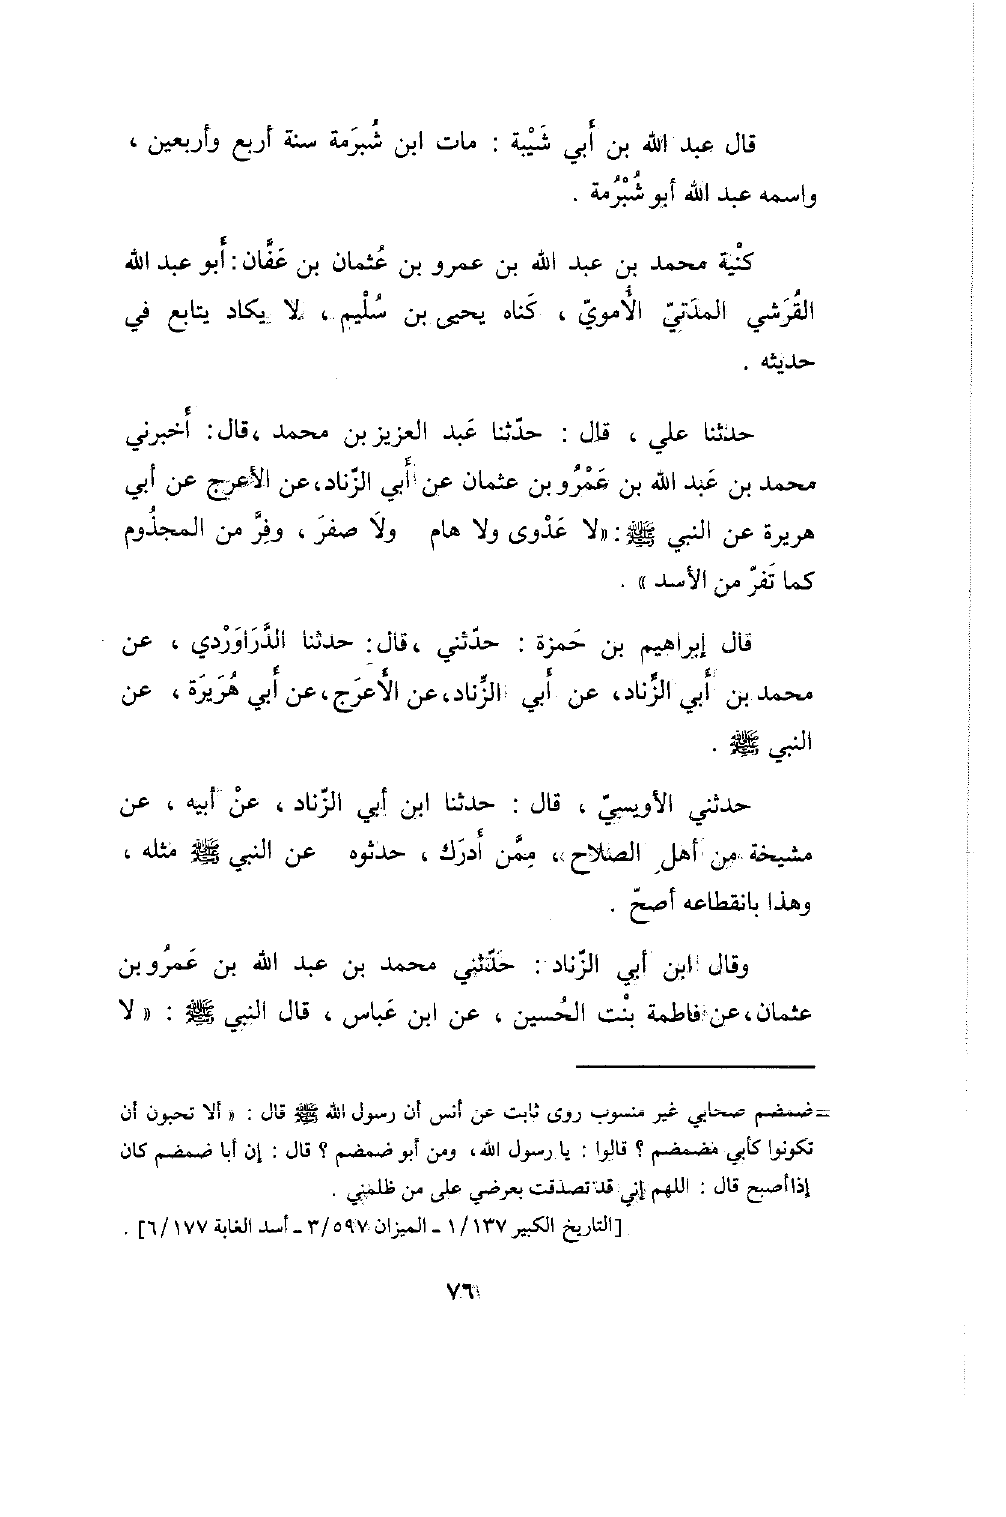 قال عبد الله بن أَبي شَيْبة : مات ابن شُبرَمة سنة أربع وأربعين ،
واسمه عبد الله أبو شُبْرُمة .
كنْية محمد بن عبد الله بن عمرو بن عُثمان بن عَفَّان : أَبو عبد الله
القُرَشي المدَنيّ الأُمويّ ، كَناه يحيى بن سُلْيم ، لا يكاد يتابع في
حديثه .
حدثنا علي ، قال : حدّثنا عَبد العزيز بن محمد ،قال : أَخبرني
محمد بن عَبد الله بن عَمْرُو بن عثمان عن أَبي الزّناد، عن الأعرج عن أبي
هريرة عن النبي ﷺ : «لا عَدْوى ولا هام ولَا صفرَ ، وفِرَّ من المجذُوم
كما تَفرّ من الأسد » .
قال إبراهيم بن حَمزة : حدّثني ،قال : حدثنا الدَّرَاوَرْدي ، عن
محمد بن أَبي الزِّناد، عن أَبي الزِّناد، عن الأَعرَج، عن أَبي هُرَيرَة ، عن
النبي ﷺ .
حدثني الأويسيّ ، قال : حدثنا ابن أبي الزّناد ، عنْ أبيه ، عن
مشيخة من أهلِ الصلاح ، مِمَّن أَدرَك ، حدثوه عن النبي ﷺ مثله ،
وهذا بانقطاعه أصحّ .
وقال ابن أبي الزّناد : حَدّثني محمد بن عبد الله بن عَمرُو بن
عثمان، عن فاطمة بنْت الحُسين ، عن ابن عَباس ، قال النبي ﷺ : « لا
=ضمضم صحابي غير منسوب روى ثابت عن أنس أن رسول الله ﷺ قال : « ألا تحبون أن
تكونوا كأبي مضمضم ؟ قالوا : يا رسول الله، ومن أبو ضمضم ؟ قال : إن أبا ضمضم كان
إذا أصبح قال : اللهم إني قد تصدقت بعرضي على من ظلمني .
[التاريخ الكبير ١/١٣٧ ـ الميزان ٣/٥٩٧ ـ أسد الغابة ٦/١٧٧] .
٧٦